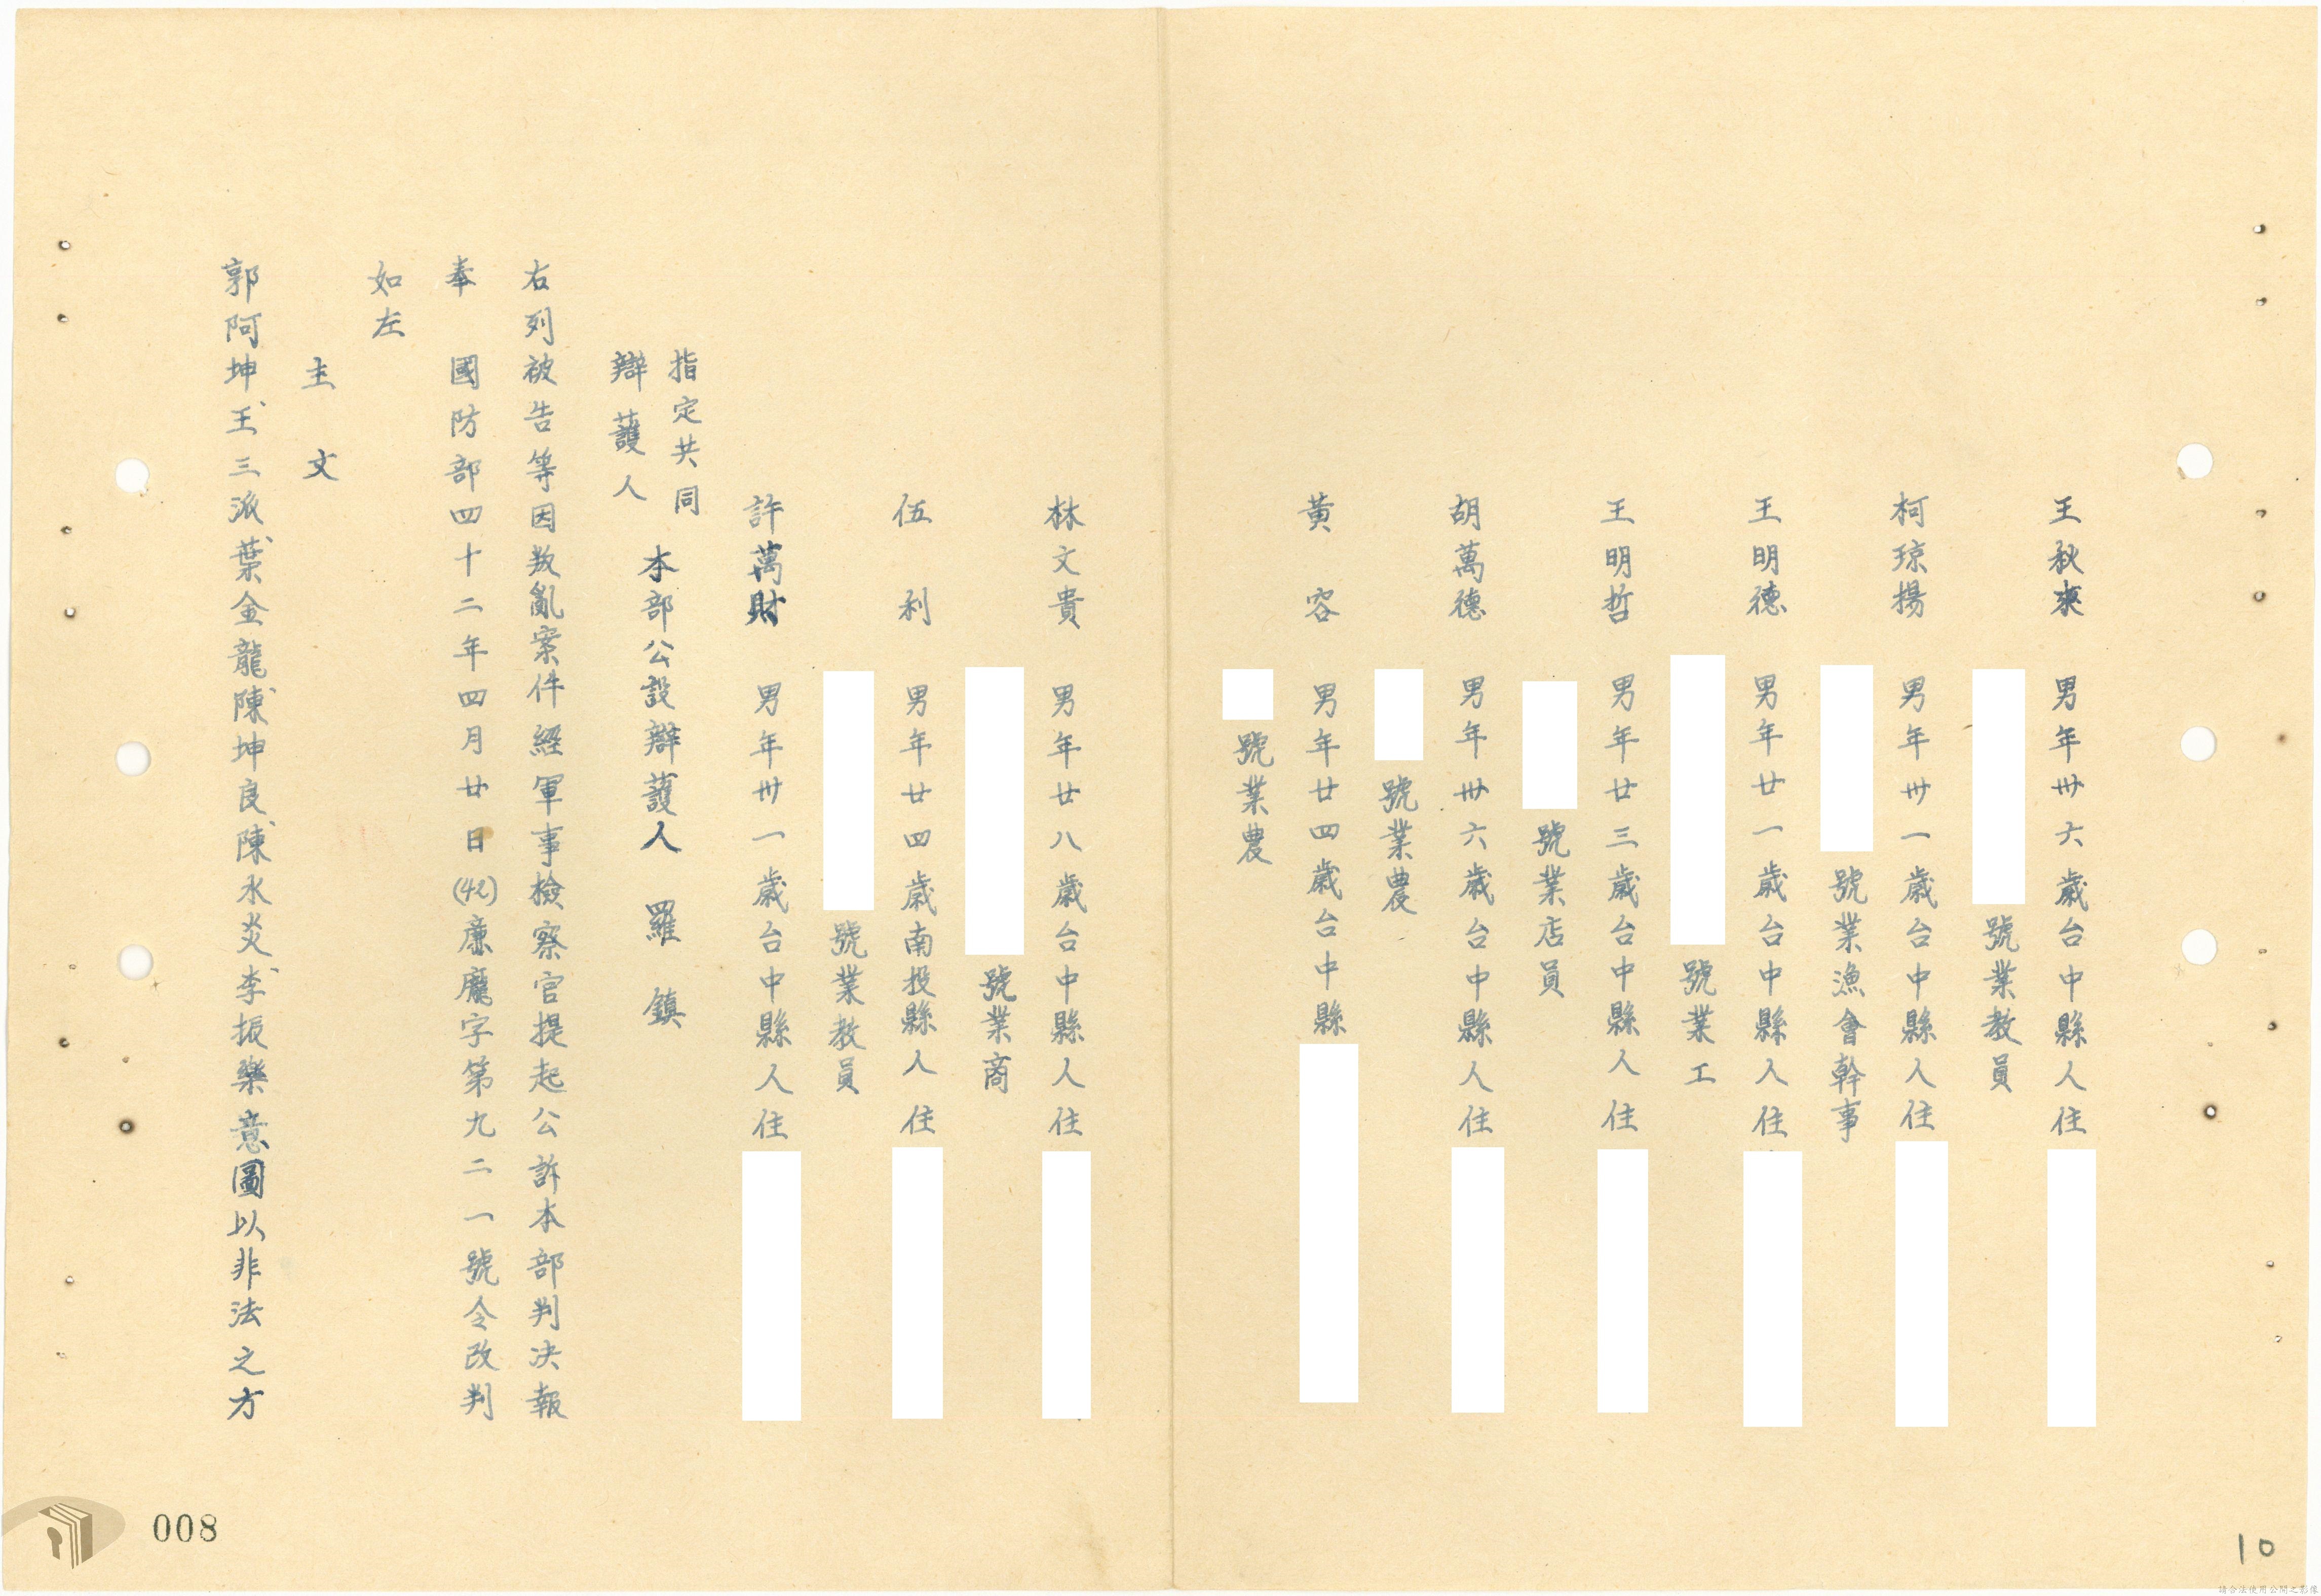 王秋來　男年卅六歲台中縣人住
號業教員
柯琼揚　男年卅一歲台中縣人住
號業漁會幹事
王明德　男年廿一歲台中縣人住
號業工
王明哲　男年廿三歲台中縣人住
號業店員
胡萬德　男年卅六歲台中縣人住
號業農
黃　容　男年廿四歲台中縣
號業農
林文貴　男年廿八歲台中縣人住
號業商
伍　利　男年廿四歲南投縣人住
號業教員
許萬財　男年卅一歲台中縣人住
指定共同
辯護人　本部公設辯護人　羅　鎮
右列被告等因叛亂案件經軍事檢察官提起公訴本部判決報
奉　國防部四十二年四月廿日(42)廉龐字第九二一號令改判
如左
主　文
郭阿坤、王三派、葉金龍、陳坤良、陳水炎、李振樂意圖以非法之方
008
10
請合法使用公開之影像